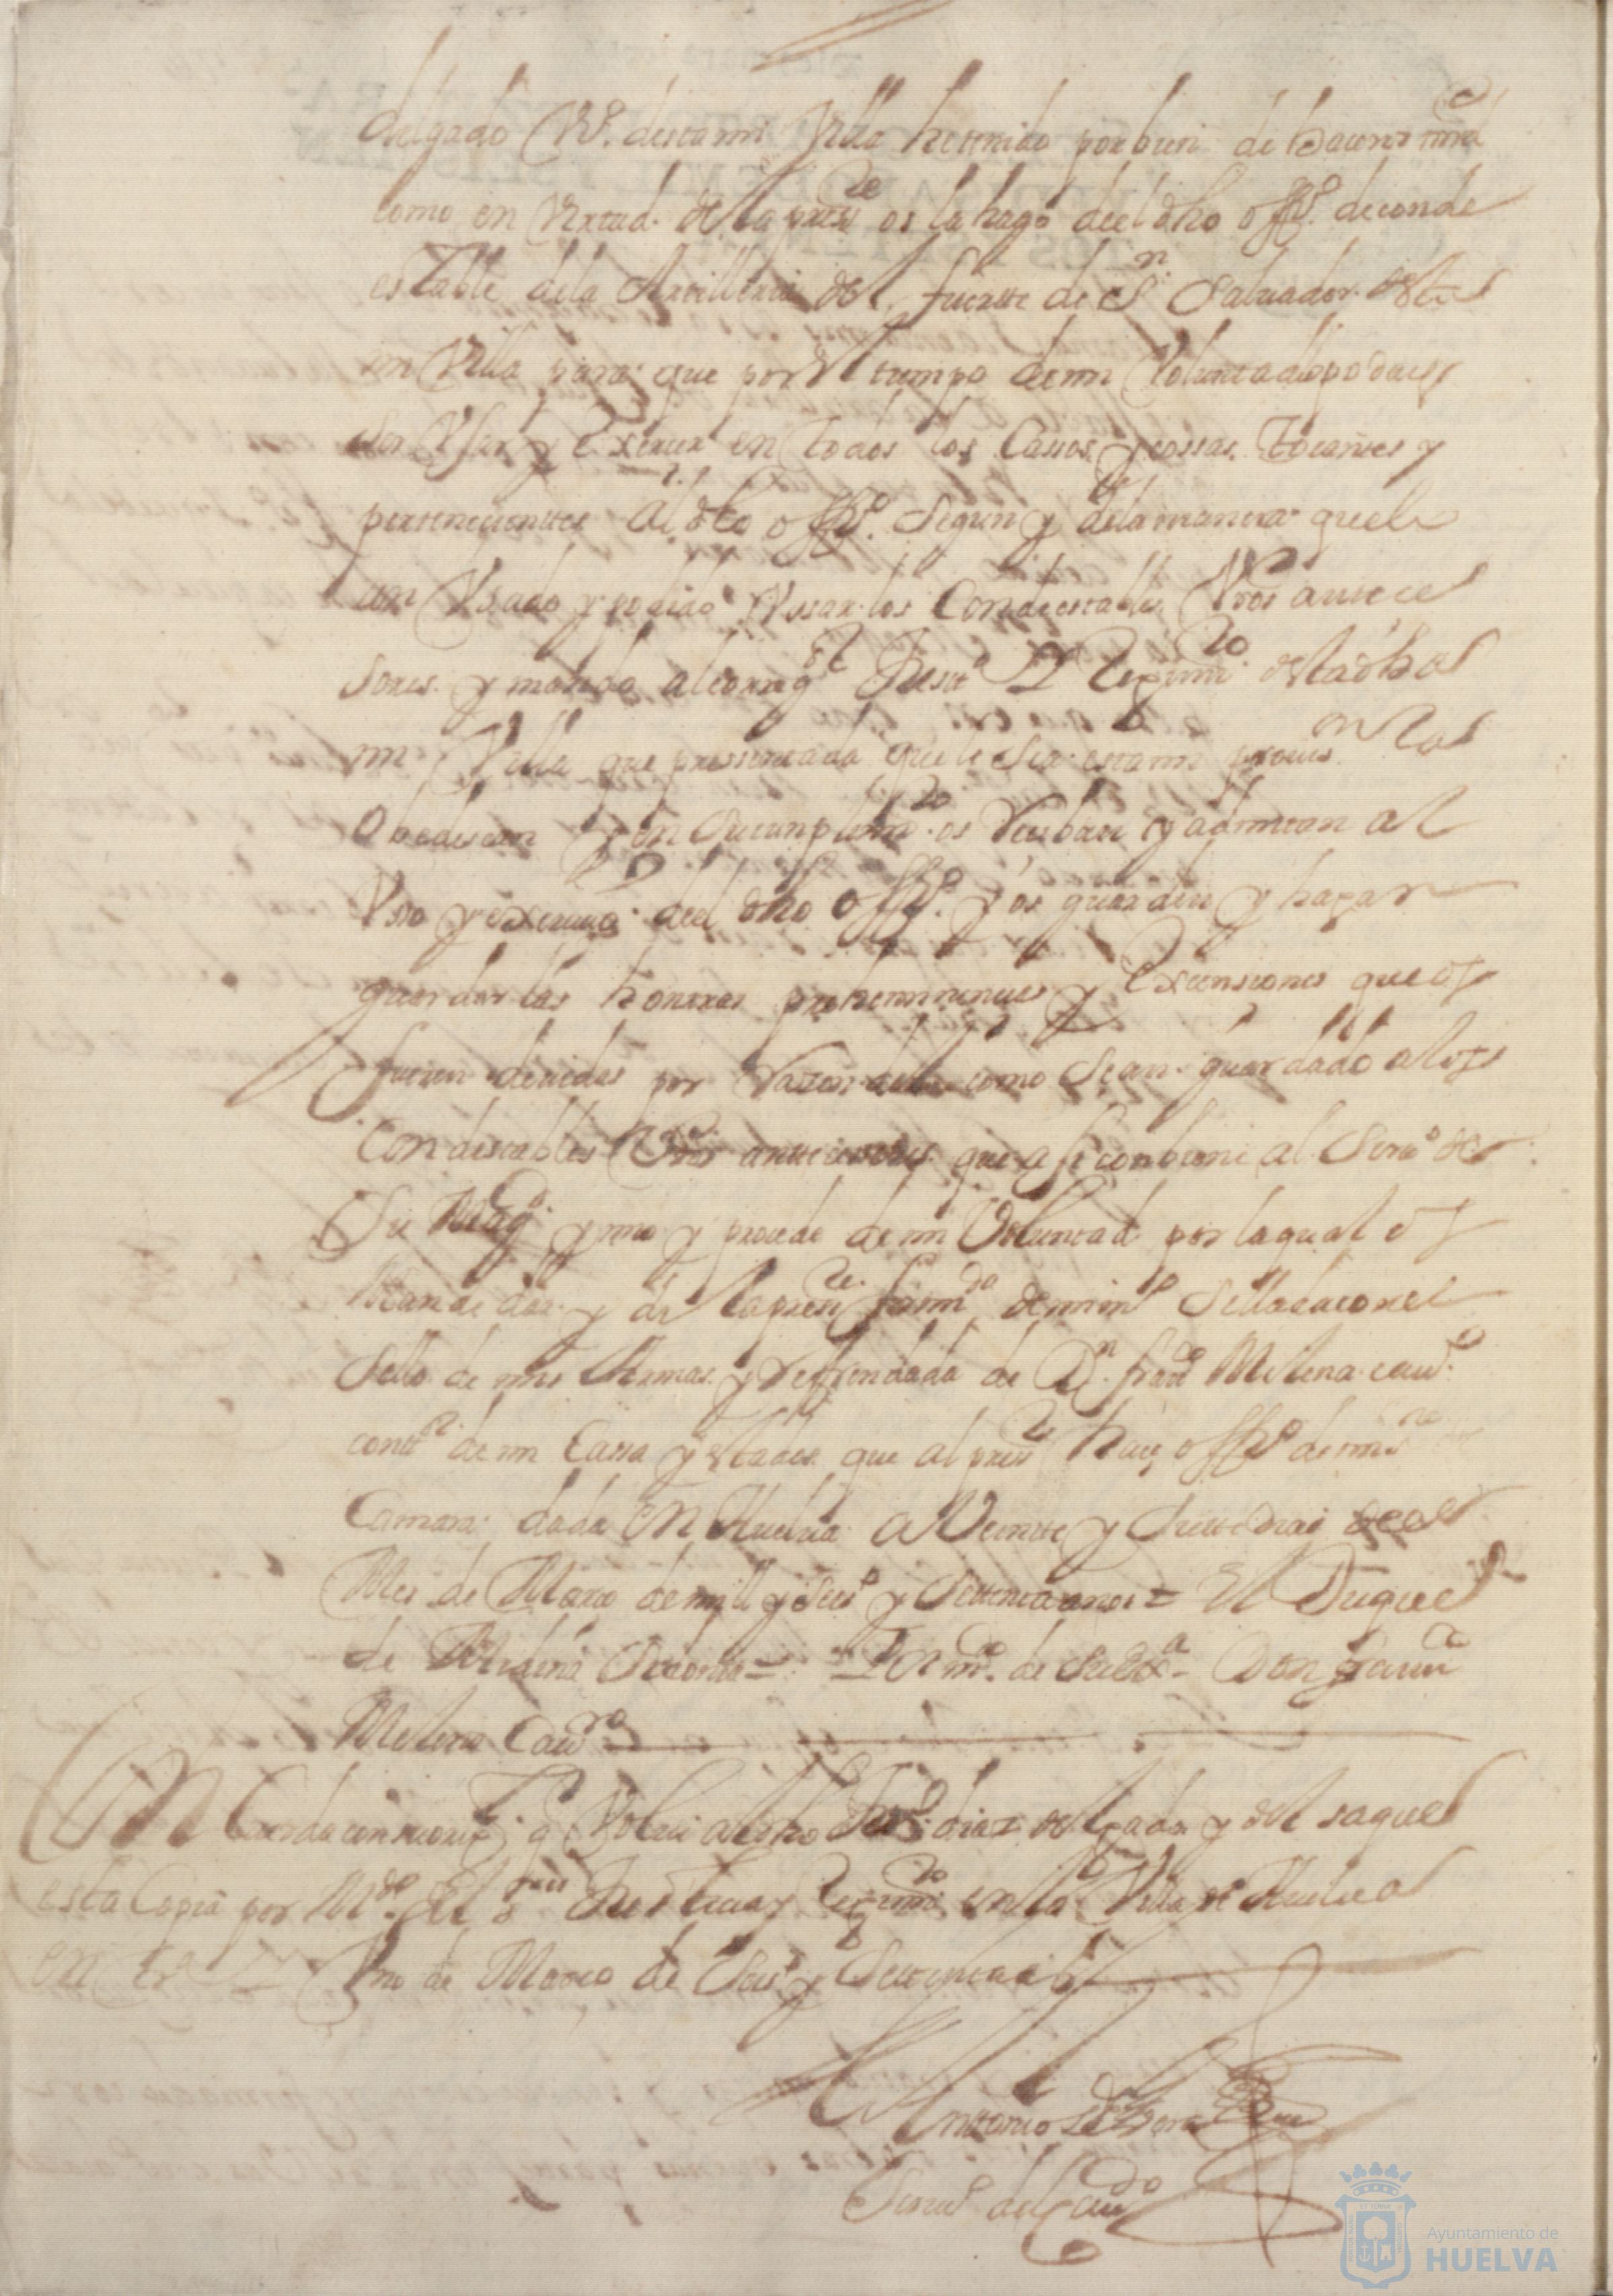 delgado Vº. desta mi Villa he tenido por bien de haceros mrd
como en Virtud de la press.te os la hago del dho offº. de conde
estable de la Artilleria del fuerte de S.n Salvador desta
mi Villa para que por el tiempo de mi Voluntad lo podais
ser Vsar y Exercer en todos los Cassos y cossas Tocantes y
pertenecientes al dho offº. segun y de la manera que le
an Vsado y podido Vssar los Condestables Vros antece
sores y mando al corregr Justª Y Regim.to de la dha
mi Villa que pressentada que le sea esta mi provis.on los
Obedescan y en su cumplim.to os Reciban y admitan al
Vsso y exercicio del dho offº. y os guarden y hagan
guardar las honrras prehemminencias y Excensiones que os
fueren devidas por Racon del como se an guardado a los
Condestables Vros antecesores que asi conbiene al Servº de
Su Magd. y mio y procede de mi Voluntad por la qual os
Mande dar y di la press.te firmda de mi mº Sellada con el
Sello de mis Armas y Refrendada de D.n franco Milena cavº.
contr de mi Cassa y estados que al press.te hace offº de mi
Camara dada En Huelva a Veintte y Siette dias del
Mes de Marco de mill y seisº y Settenta años = El Duque
de Medina Sidonia = Por mdo. de su Exª = Don franco
Milena Cavro
En Cuerda con su orixl q Volvi al dho diaz delgado y del saque
esta Copia por Mdo. del Justicia y Regimto en la Villa de Huelva
en Tr.ª Y Vno de Marco de Seisº y Settenta as
Anttonio de
Scrivº del Cavdo
Ayuntamiento de
HUELVA